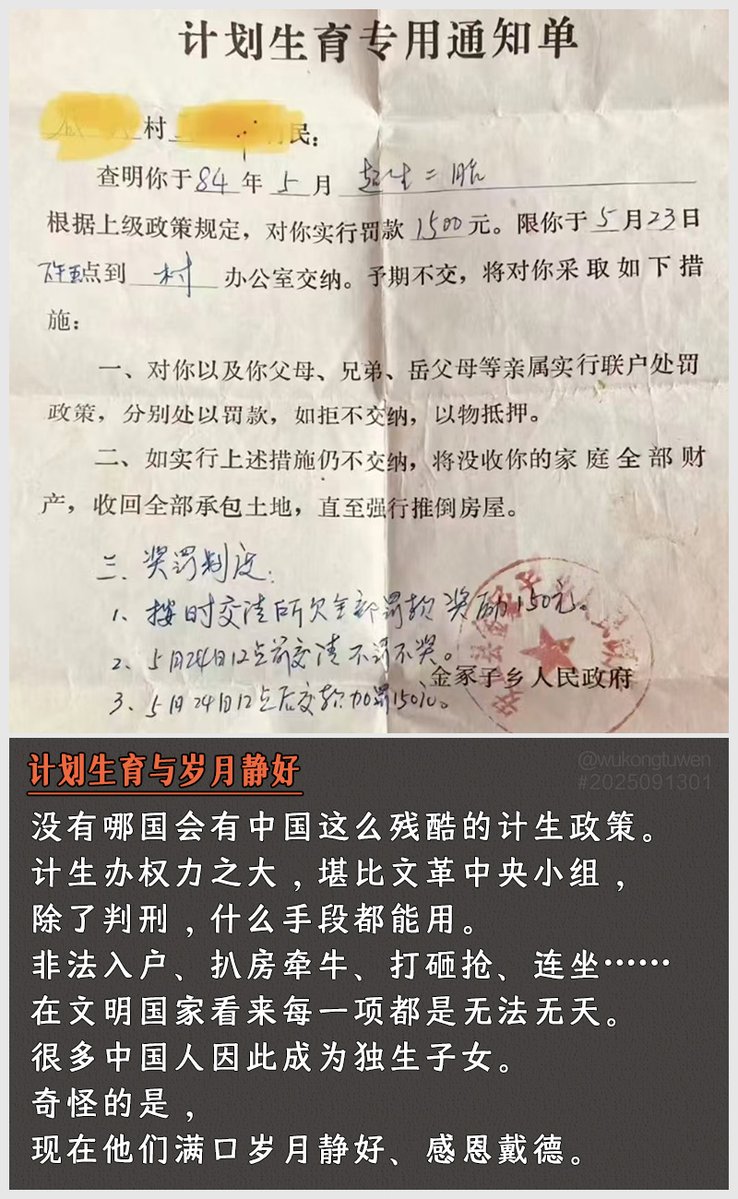 计划生育专用通知单
村
民：
查明你于84年5月超生二胎
根据上级政策规定，对你实行罚款1500元。限你于5月23日
下午5点到村办公室交纳。予期不交，将对你采取如下措
施：
一、对你以及你父母、兄弟、岳父母等亲属实行联户处罚
政策，分别处以罚款，如拒不交纳，以物抵押。
二、如实行上述措施仍不交纳，将没收你的家庭全部财
产，收回全部承包土地，直至强行推倒房屋。
三、奖罚制度：
1、按时交清所欠全部罚款奖励150元。
2、5月24日12点前交清不罚不奖。
金冢子乡人民政府
3、5月24日12点后交款加罚150元。
计划生育与岁月静好
@wukongtuwen
#2025091301
没有哪国会有中国这么残酷的计生政策。
计生办权力之大，堪比文革中央小组，
除了判刑，什么手段都能用。
非法入户、扒房牵牛、打砸抢、连坐……
在文明国家看来每一项都是无法无天。
很多中国人因此成为独生子女。
奇怪的是，
现在他们满口岁月静好、感恩戴德。